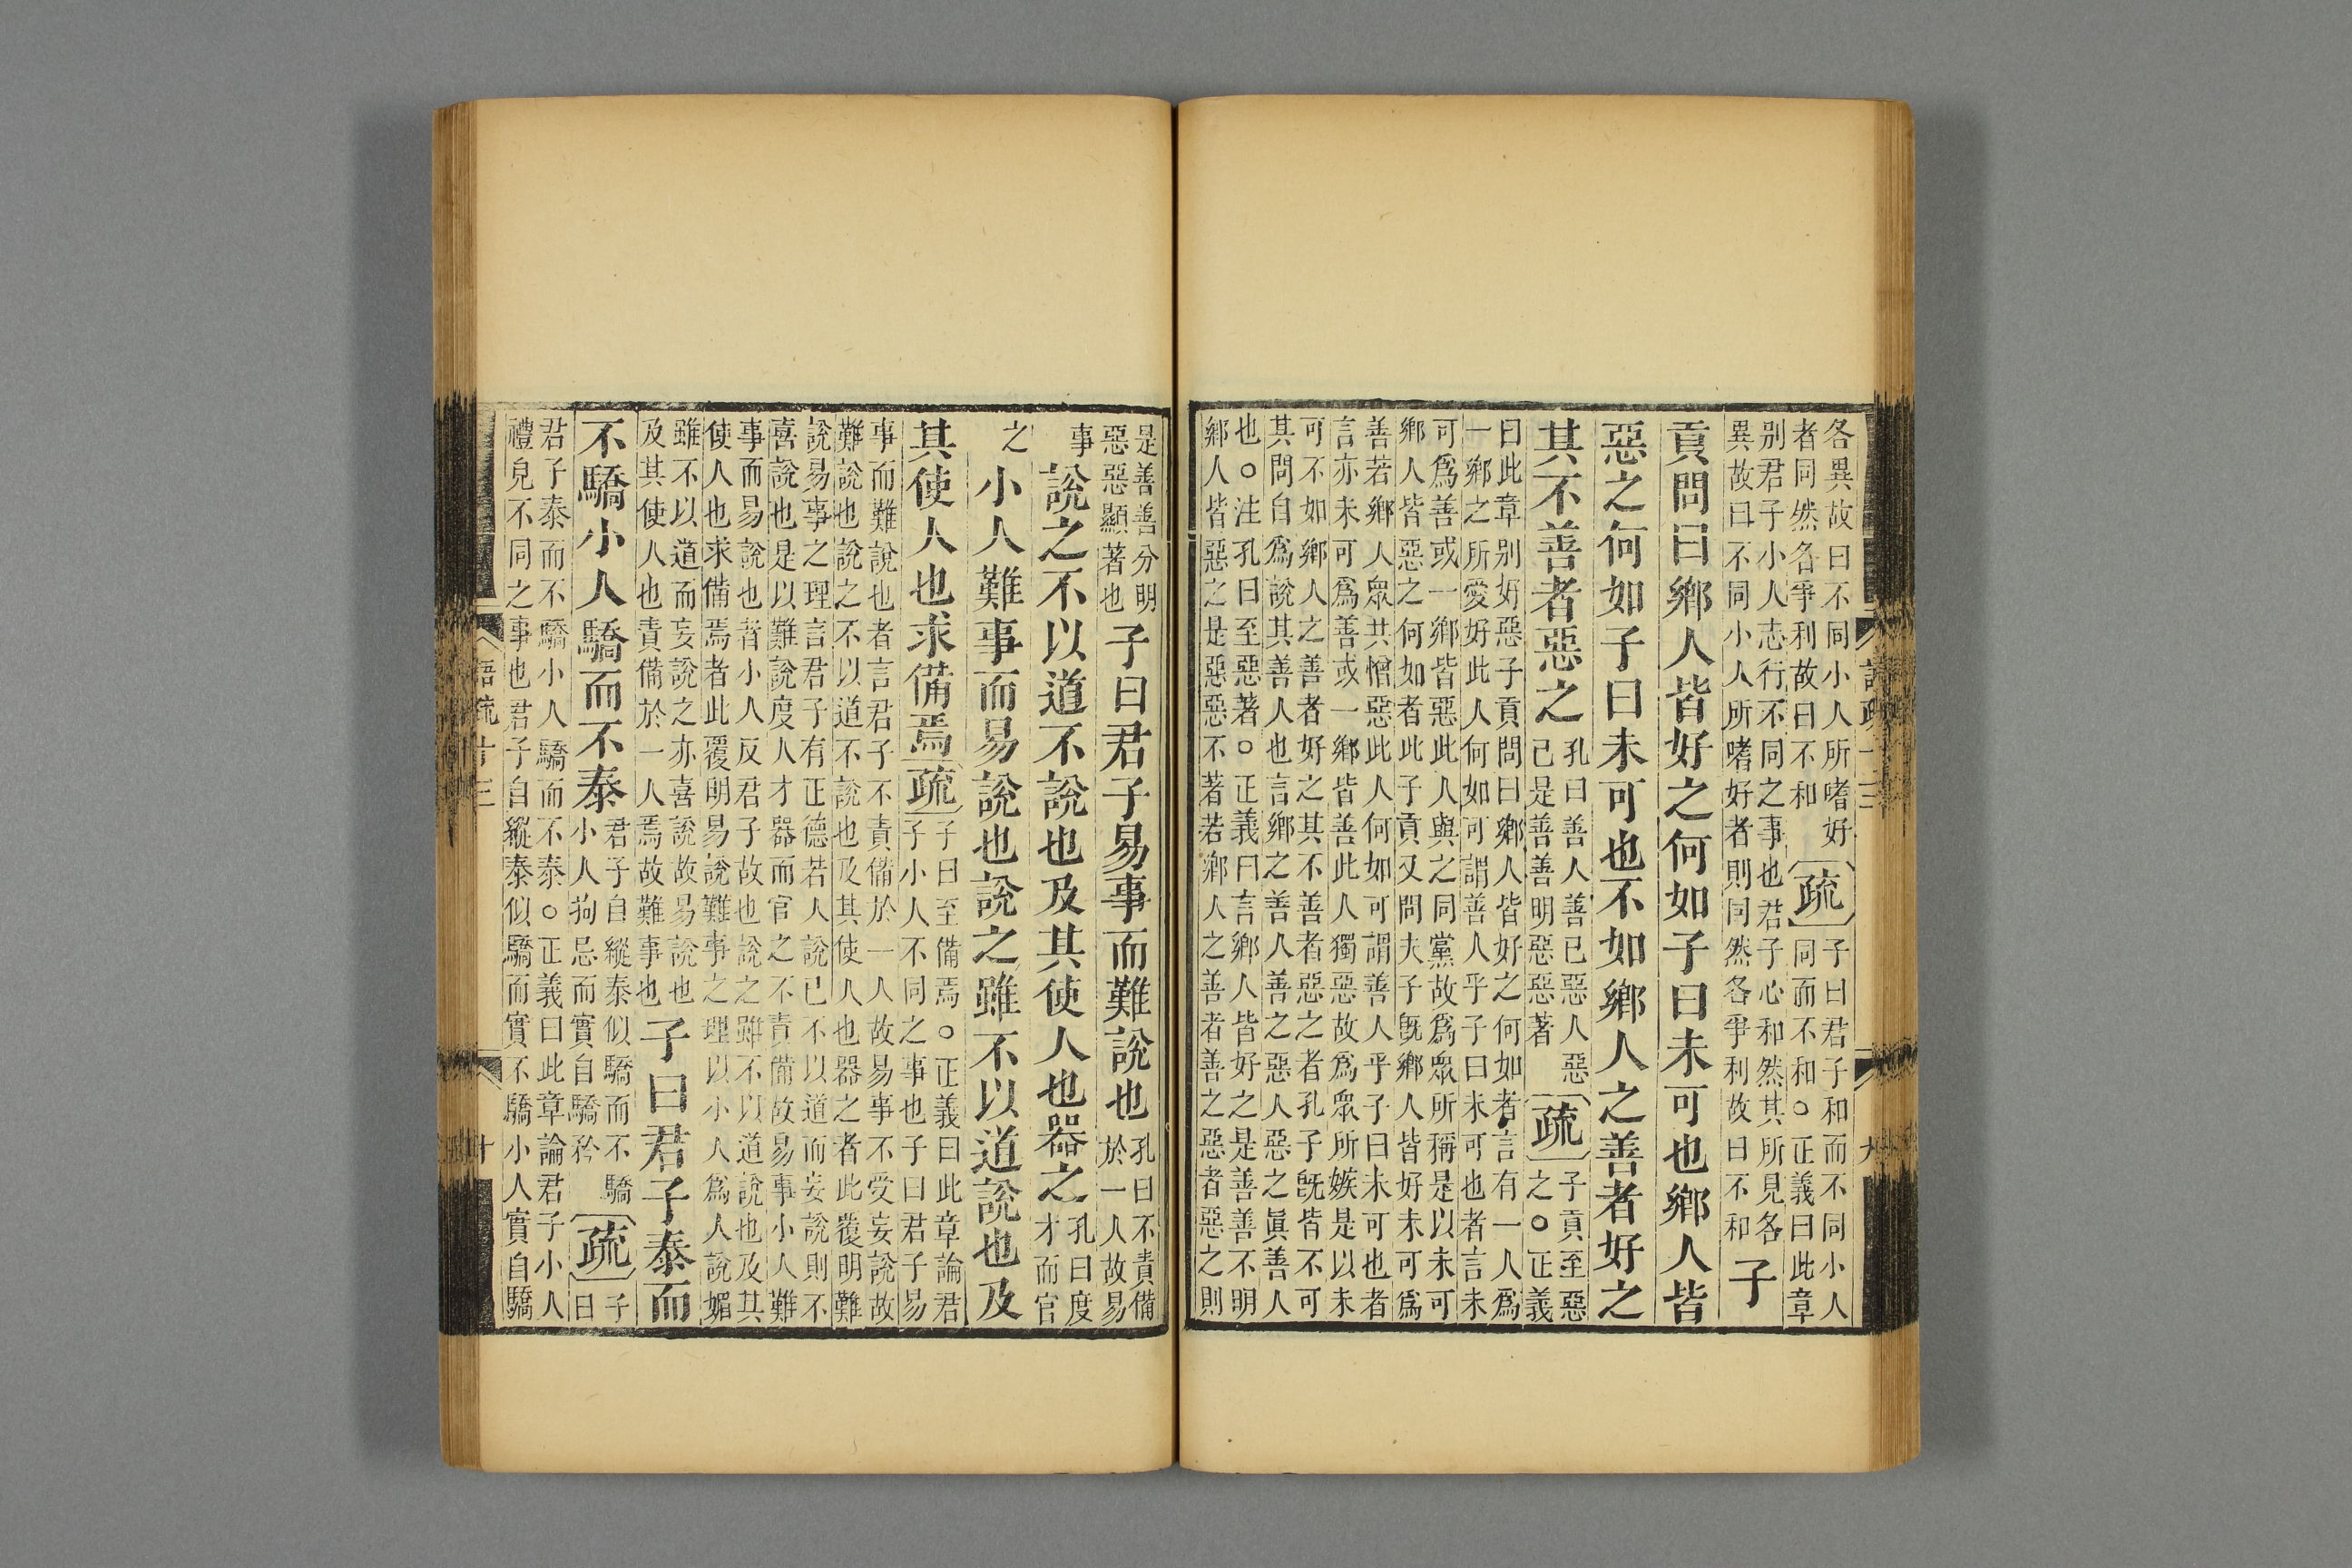 各異故曰不同小人所嗜好
者同然各爭利故曰不和
疏
子曰君子和而不同小人
同而不和○正義曰此章
别君子小人志行不同之事也君子心和然其所見各
異故曰不同小人所嗜好者則同然各爭利故曰不和
子
貢問曰鄉人皆好之何如子曰未可也鄉人皆
惡之何如子曰未可也不如鄉人之善者好之
其不善者惡之
孔曰善人善已惡人惡
已是善善明惡惡著
疏
子貢至惡
之○正義
曰此章别好惡子貢問曰鄉人皆好之何如者言有一人爲
一鄉之所愛好此人何如可謂善人乎子曰未可也者言未
可爲善或一鄉皆惡此人與之同黨故爲眾所稱是以未可
鄉人皆惡之何如者此子貢又問夫子旣鄉人皆好未可爲
善若鄉人眾共憎惡此人何如可謂善人乎子曰未可也者
言亦未可爲善或一鄉皆善此人獨惡故爲眾所嫉是以未
可不如鄉人之善者好之其不善者惡之者孔子旣皆不可
其問自爲說其善人也言鄉之善人善之惡人惡之眞善人
也○注孔曰至惡著○正義曰言鄉人皆好之是善善不明
鄉人皆惡之是惡惡不著若鄉人之善者善之惡者惡之則
是善善分明
惡惡顯著也
子曰君子易事而難說也
孔曰不責備
於一人故易
事
說之不以道不說也及其使人也器之
孔曰度
才而官
之
小人難事而易說也說之雖不以道說也及
其使人也求備焉
疏
子曰至備焉○正義曰此章論君
子小人不同之事也子曰君子易
事而難說也者言君子不責備於一人故易事不受妄說故
難說也說之不以道不說也及其使人也器之者此覆明難
說易事之理言君子有正德若人說已不以道而妄說則不
喜說也是以難說度人才器而官之不責備故易事小人難
事而易說也者小人反君子故也說之雖不以道說也及其
使人也求備焉者此覆明易說難事之理以小人爲人說媚
雖不以道而妄說之亦喜說故易說也
及其使人也責備於一人焉故難事也
子曰君子泰而
不驕小人驕而不泰
君子自縱泰似驕而不驕
小人拘忌而實自驕矜
疏
子
曰
君子泰而不驕小人驕而不泰○正義曰此章論君子小人
禮皃不同之事也君子自縱泰似驕而實不驕小人實自驕
語疏十三
十